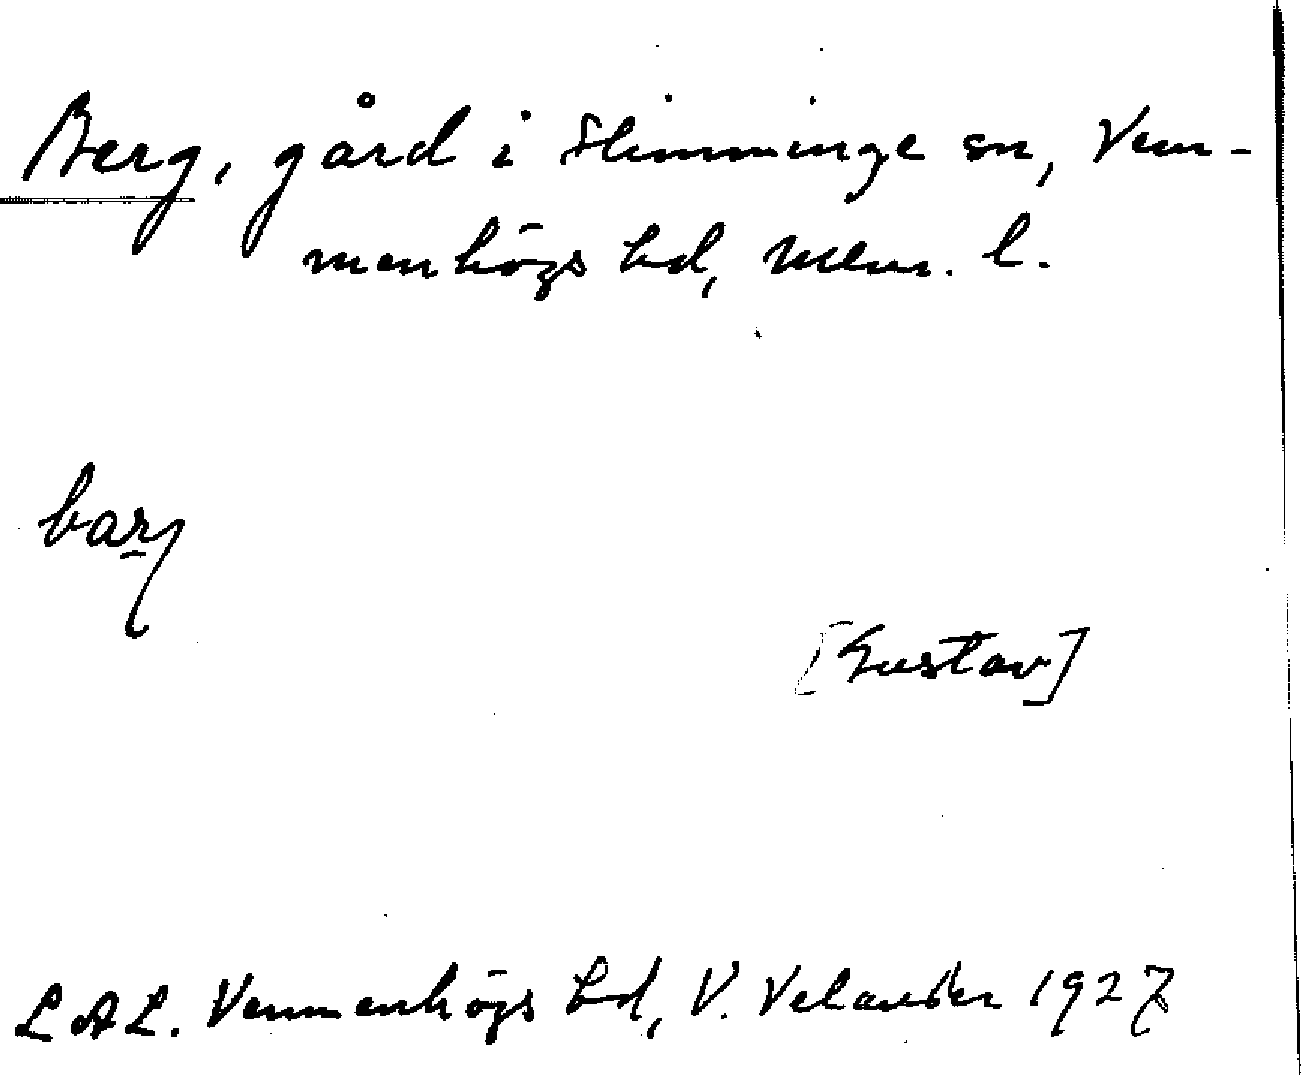 Berg, gård i Slimminge sn, Vem-
menhögs hd, Malm. l.
barj
[Gustav]
LAL. Vemmenhögs hd, V. Velander 1927